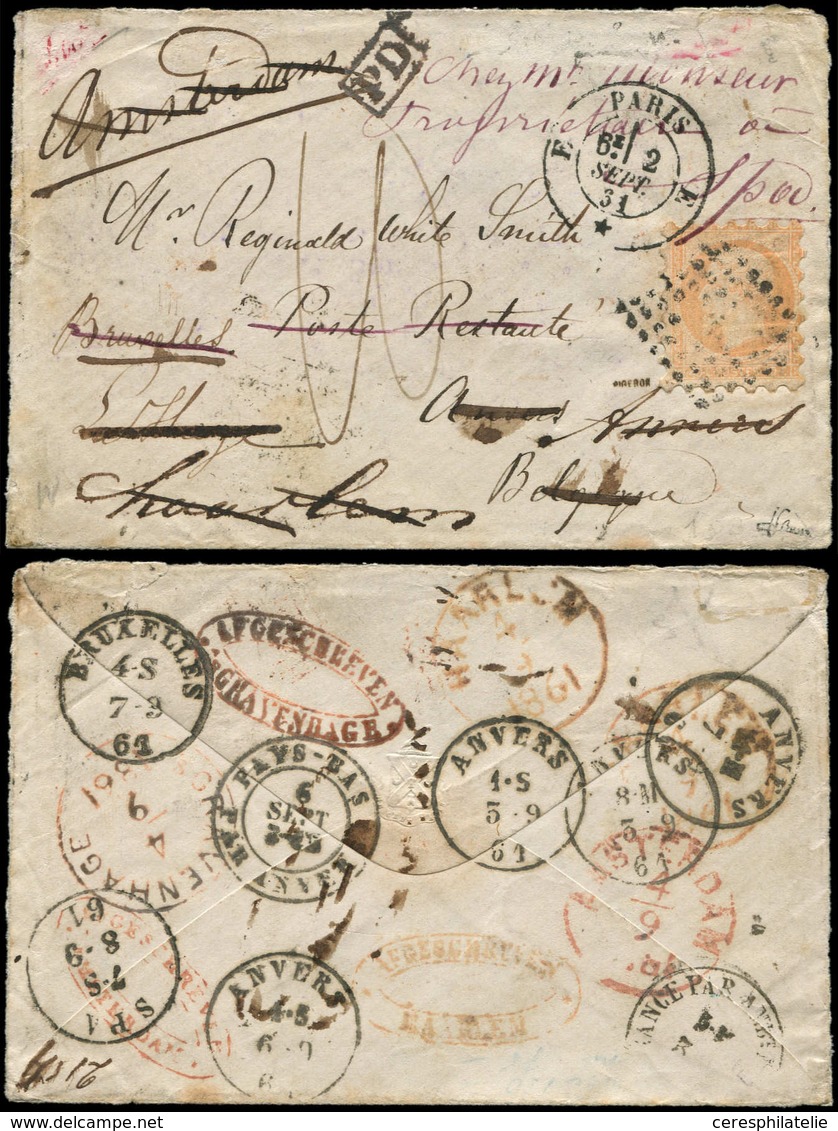 Amsterdam
PD
Chez Mr Monseur
Propriétaire à
Spa
PARIS
E
E
6E
2
SEPT.
61
Mr. Reginald White Smith
Bruxelles Poste Restante
La Haye
Anvers Anvers
Haarlem
Belgique
PIGERON
BRUXELLES
4-S
7-9
61
AFGESCHREVEN
'SGRAVENHAGE
HAARLEM
1861
ANVERS
1-S
5-9
61
ANVERS
8-M
5-9
61
PAYS-BAS
6
SEPT
PAR ANVERS
4
9
1861
AMSTERDAM
SPA
7-S
8-9
61
ANVERS
4-S
6-9
6
AFGESCHREVEN
HAARLEM
FRANCE PAR
ceresphilatelie